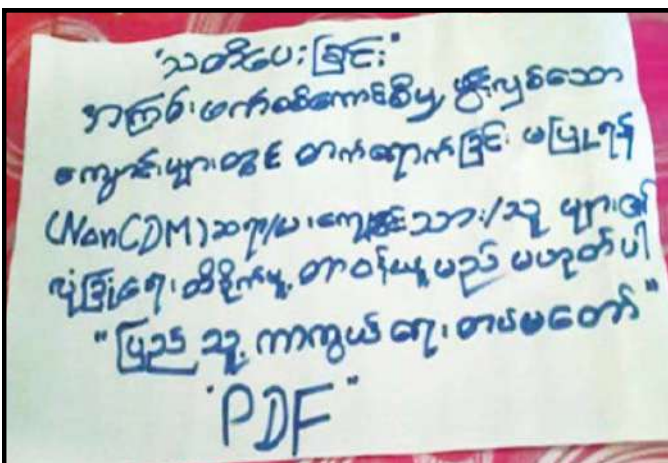 "သတိပေးခြင်း"
အကြမ်းဖက်စစ်ကောင်စီမှ ဖွင့်လှစ်သော
ကျောင်းများတွင် တက်ရောက်ခြင်း မပြုရန်
(NonCDM) ဆရာ/မ၊ ကျောင်းသား/သူ များ၏
လုံခြုံရေး ထိခိုက်မှု့ တာဝန်ယူမည် မဟုတ်ပါ
"ပြည်သူ့ ကာကွယ်ရေး တပ်မတော်"
"PDF"